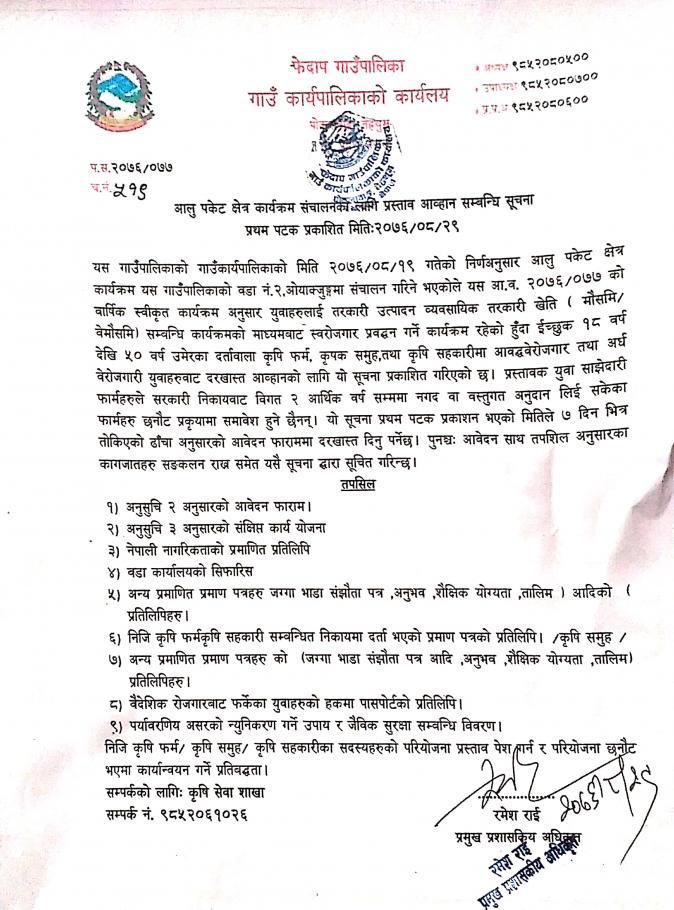 फेदाप गाउँपालिका
गाउँ कार्यपालिकाको कार्यलय
अध्यक्ष ९८५२०८०५००
उपाध्यक्ष ९८५२०८०७००
प्र.प्र.अ ९८५२०८०६००
फेदाप गाउँपालिका
गाउँ कार्यपालिकाको कार्यालय
प.स.२०७६/०७७
च.नं. ५१९
आलु पकेट क्षेत्र कार्यक्रम संचालनका लागि प्रस्ताव आव्हान सम्बन्धि सूचना
प्रथम पटक प्रकाशित मितिः२०७६/०८/२९
यस गाउँपालिकाको गाउँकार्यपालिकाको मिति २०७६/०८/१९ गतेको निर्णअनुसार आलु पकेट क्षेत्र
कार्यक्रम यस गाउँपालिकाको वडा नं.२,ओयाक्जुङ्गमा संचालन गरिने भएकोले यस आ.व. २०७६/०७७ को
वार्षिक स्वीकृत कार्यक्रम अनुसार युवाहरुलाई तरकारी उत्पादन व्यवसायिक तरकारी खेति ( मौसमि/
वेमौसमि) सम्बन्धि कार्यक्रमको माध्यमबाट स्वरोजगार प्रवद्धन गर्ने कार्यक्रम रहेको हुँदा ईच्छुक १८ वर्ष
देखि ५० वर्ष उमेरका दर्तावाला कृषि फर्म, कृपक समुह,तथा कृषि सहकारीमा आवद्धवेरोजगार तथा अर्ध
वेरोजगारी युवाहरुबाट दरखास्त आव्हानको लागि यो सूचना प्रकाशित गरिएको छ। प्रस्तावक युवा साझेदारी
फार्महरुले सरकारी निकायवाट विगत २ आर्थिक वर्ष सम्ममा नगद वा वस्तुगत अनुदान लिई सकेका
फार्महरु छनौट प्रकृयामा समावेश हुने छैनन्। यो सूचना प्रथम पटक प्रकाशन भएको मितिले ७ दिन भित्र
तोकिएको ढाँचा अनुसारको आवेदन फाराममा दरखास्त दिनु पर्नेछ। पुनश्चः आवेदन साथ तपशिल अनुसारका
कागजातहरु सङकलन राख्न समेत यसै सूचना द्वारा सूचित गरिन्छ।
तपसिल
१) अनुसुचि २ अनुसारको आवेदन फाराम।
२) अनुसुचि ३ अनुसारको संक्षिप्त कार्य योजना
३) नेपाली नागरिकताको प्रमाणित प्रतिलिपि
४) वडा कार्यालयको सिफारिस
५) अन्य प्रमाणित प्रमाण पत्रहरु जग्गा भाडा संझौता पत्र ,अनुभव ,शैक्षिक योग्यता ,तालिम ) आदिको (
प्रतिलिपिहरु।
६) निजि कृषि फर्मकृषि सहकारी सम्बन्धित निकायमा दर्ता भएको प्रमाण पत्रको प्रतिलिपि। /कृषि समुह /
७) अन्य प्रमाणित प्रमाण पत्रहरु को (जग्गा भाडा संझौता पत्र आदि ,अनुभव ,शैक्षिक योग्यता ,तालिम)
प्रतिलिपिहरु।
८) वैदेशिक रोजगारबाट फर्केका युवाहरुको हकमा पासपोर्टको प्रतिलिपि।
९) पर्यावरणिय असरको न्युनिकरण गर्ने उपाय र जैविक सुरक्षा सम्बन्धि विवरण।
निजि कृषि फर्म/ कृषि समुह/ कृषि सहकारीका सदस्यहरुको परियोजना प्रस्ताव पेश गर्न र परियोजना छनौट
भएमा कार्यान्वयन गर्ने प्रतिवद्धता।
सम्पर्कको लागिः कृषि सेवा शाखा
सम्पर्क नं. ९८५२०६१०२६
२०७६/८/२९
रमेश राई
प्रमुख प्रशासकिय अधिकृत
रमेश राई
प्रमुख प्रशासकीय अधिकृत